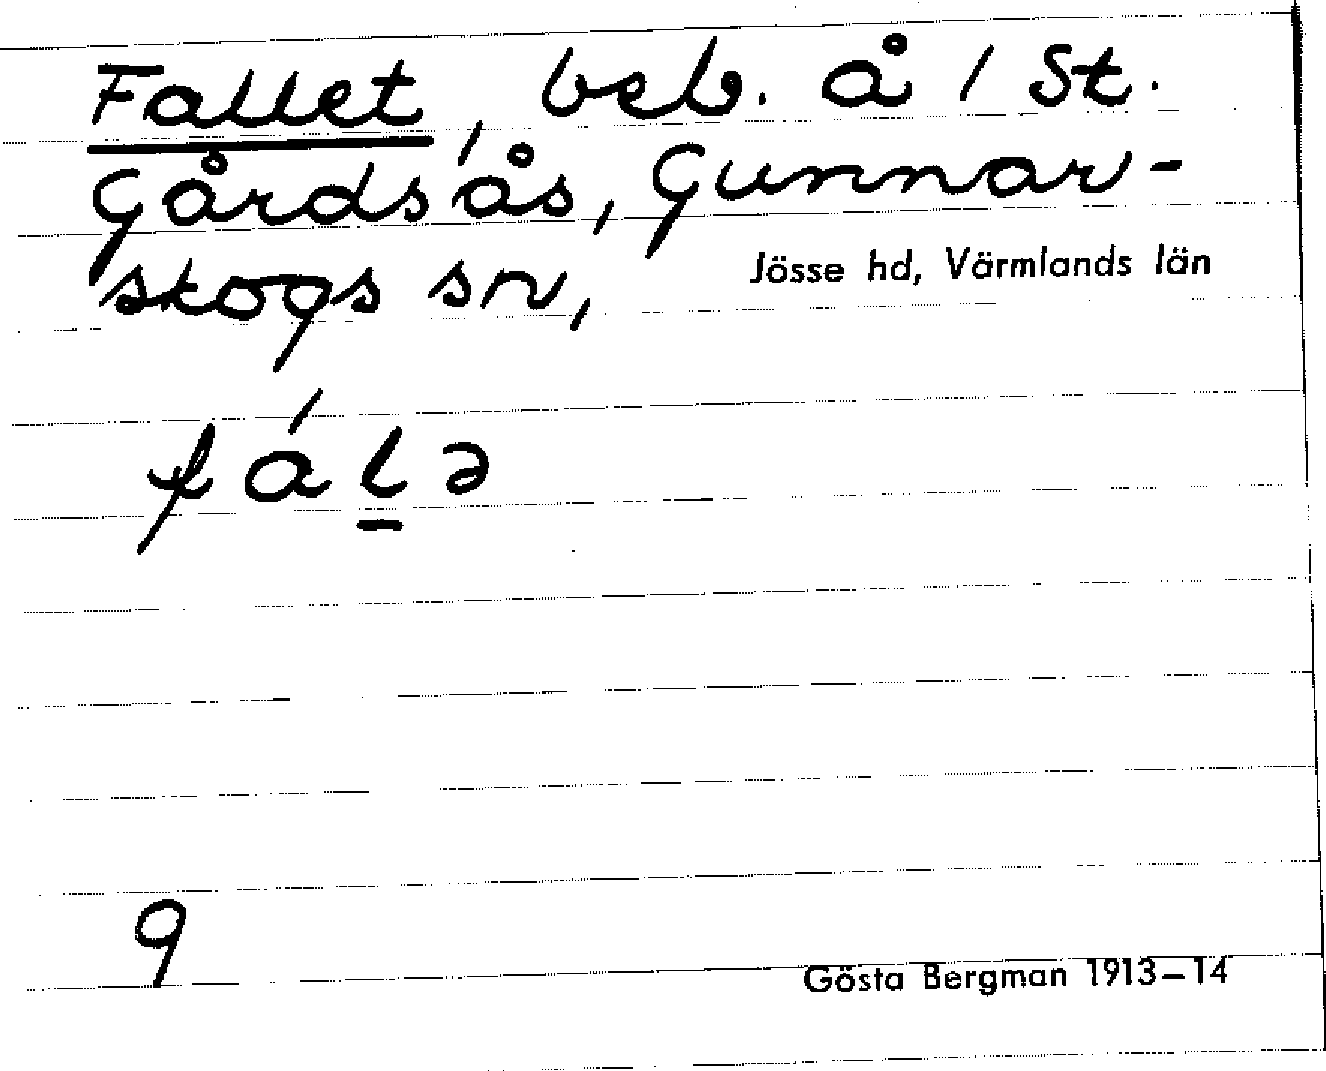 Fallet, beb. å 1 St.
Gårdsås, Gunnar-
skogs sn, Jösse hd, Värmlands län
fál̲ə
9
Gösta Bergman 1913–14